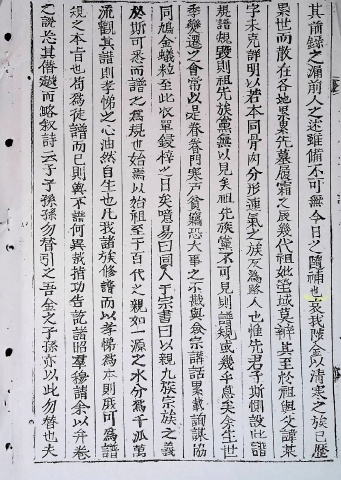 其前錄之漏前人之述雖備不可無今日之隨補也哀我隴金以清寒之族已歷
累世而散在各地累累先墓履霜之辰幾代祖妣塋域莫辨其主於祖與父諱某
字未克詳明以若本同骨肉分形連氣之族反為路人也惟先君子斯惻設此譜
規譜規壞則祖先族黨無以見矣祖先族黨不可見則譜規或幾乎息矣余生世
季變遷之會常以是眷眷門寒戶貧竊恐大事之不戢與僉宗講話累載詢謀協
同鳩金蟻粒至此衣單鋟梓之日矣噫易曰同人于宗書曰以親九族宗族之義
於斯可悉而譜之為規也始焉以始祖至于百代之親如一源之水分為千派萬
流觀其譜則孝悌之心油然自生也凡我諸族修譜而以孝悌為本則庶可為譜
規之本旨也苟為徒譜而已則與不譜何異哉措功告訖諸昭羣穆請余以弁卷
之識恐其僭越而略叙詩云子子孫孫勿替引之吾金之子孫亦以此勿替也夫